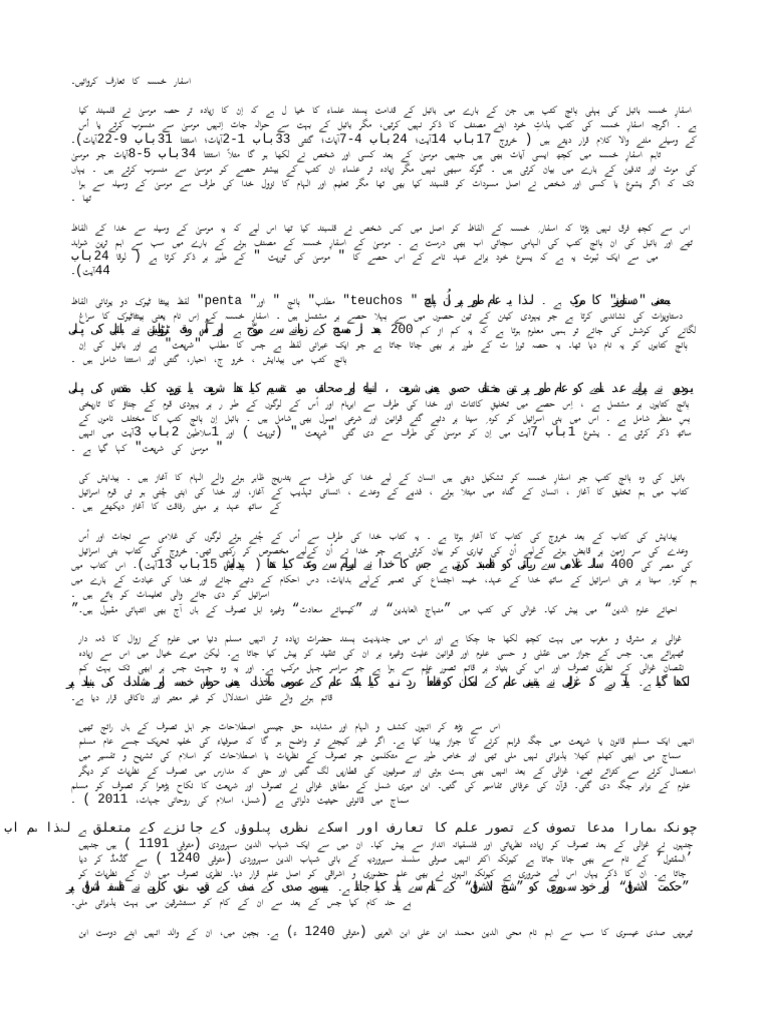 اسفار خمسہ کا تعارف کروائیں۔
اسفار خمسہ بائبل کی پہلی پانچ کتب ہیں جن کے بارے میں بائبل کے قدامت پسند علماء کا خیا ل ہے کہ اِن کا زیادہ تر حصہ موسیٰ نے قلمبند کیا
ہے ۔ اگرچہ اسفارِ خمسہ کی کتب بذاتِ خود اپنے مصنف کا ذکر نہیں کرتیں، مگر بائبل کے بہت سے حوالہ جات اِنہیں موسیٰ سے منسوب کرتے یا اُس
کے وسیلے ملنے والا کلام قرار دیتے ہیں ( خروج 17باب 14آیت؛ 24باب 4-7آیات؛ گنتی 33باب 1-2آیات؛ استثنا 31باب 9-22آیات)۔
تاہم اسفارِ خمسہ میں کچھ ایسی آیات بھی ہیں جنہیں موسیٰ کے بعد کسی اور شخص نے لکھا ہو گا مثلاً استثنا 34باب 5-8آیات جو موسیٰ
کی موت اور تدفین کے بارے میں بیان کرتی ہیں ۔ گوکہ سبھی نہیں مگر زیادہ تر علماء ان کتب کے بیشتر حصے کو موسیٰ سے منسوب کرتے ہیں ۔ یہاں
تک کہ اگر یشوع یا کسی اور شخص نے اصل مسودات کو قلمبند کیا بھی تھا مگر تعلیم اور الہام کا نزول خدا کی طرف سے موسیٰ کے وسیلہ سے ہوا
تھا ۔
اس سے کچھ فرق نہیں پڑتا کہ اسفار ِ خمسہ کے الفاظ کو اصل میں کس شخص نے قلمبند کیا تھا اس لیے کہ یہ موسیٰ کے وسیلہ سے خدا کے الفاظ
تھے اور بائبل کی ان پانچ کتب کی الہامی سچائی اب بھی درست ہے ۔ موسیٰ کے اسفارِ خمسہ کے مصنف ہونے کے بارے میں سب سے اہم ترین شواہد
میں سے ایک ثبوت یہ ہے کہ یسوع خود پرانے عہد نامے کے اس حصے کا " موسیٰ کی توریت " کے طور پر ذکر کرتا ہے ( لوقا 24باب
44آیت)۔
لفظ پینٹا ٹیوک دو یونانی الفاظ "penta" مطلب" پانچ " اور "teuchos" بمعنی "دستاویز" کا مرکب ہے ۔ لہذا یہ عام طور پر اُن پانچ
دستاویزات کی نشاندہی کرتا ہے جو یہودی کینن کے تین حصوں میں سے پہلا حصے پر مشتمل ہیں ۔ اسفارِ خمسہ کے اِس نام یعنی پینٹاٹیوک کا سراغ
لگانے کی کوشش کی جائے تو ہمیں معلوم ہوتا ہے کہ یہ کم از کم 200 بعد از مسیح کے زمانے سے مروّج ہے اور اُس وقت ٹرٹولین نے بائبل کی پہلی
پانچ کتابوں کو یہ نام دیا تھا۔ یہ حصہ تورا ت کے طور پر بھی جانا جاتا ہے جو ایک عبرانی لفظ ہے جس کا مطلب "شریعت" ہے اور بائبل کی اِن
پانچ کتب میں پیدایش ، خرو ج، احبار، گنتی اور استثنا شامل ہیں ۔
یہودیو ں نے پرانے عہد نامے کو عام طور پر تین مختلف حصو ں یعنی شریعت ، انبیاء اور صحائف میں تقسیم کیا تھا۔ شریعت یا توریت کتاب مقدس کی پہلی
پانچ کتابوں پر مشتمل ہے ، اِس حصے میں تخلیقِ کائنات اور خدا کی طرف سے ابرہام اور اُس کے لوگوں کے طو ر پر یہودی قوم کے چناؤ کا تاریخی
پس منظر شامل ہے ۔ اس میں بنی اسرائیل کو کوہ ِ سینا پر دئیے گئے قوانین اور شرعی اصول بھی شامل ہیں ۔ بائبل اِن پانچ کتب کا مختلف ناموں کے
ساتھ ذکر کرتی ہے ۔ یشوع 1باب 7آیت میں اِن کو موسیٰ کی طرف سے دی گئی "شریعت " (توریت ) اور 1سلاطین 2باب 3آیت میں انہیں
" موسیٰ کی شریعت" کہا گیا ہے ۔
بائبل کی وہ پانچ کتب جو اسفارِ خمسہ کو تشکیل دیتی ہیں انسان کے لیے خدا کی طرف سے بتدریج ظاہر ہونے والے الہام کا آغاز ہیں ۔ پیدایش کی
کتاب میں ہم تخلیق کا آغاز ، انسان کے گناہ میں مبتلا ہونے ، فدیے کے وعدے ، انسانی تہذیب کے آغاز، اور خدا کی اپنی چُنی ہو ئی قوم اسرائیل
کے ساتھ عہد پر مبنی رفاقت کا آغاز دیکھتے ہیں ۔
پیدایش کی کتاب کے بعد خروج کی کتاب کا آغاز ہوتا ہے ۔ یہ کتاب خدا کی طرف سے اُس کے چُنے ہوئے لوگوں کی غلامی سے نجات اور اُس
وعدے کی سر زمین پر قابض ہونے کےلیے اُن کی تیاری کو بیان کرتی ہے جو خدا نے اُن کےلیے مخصوص کر رکھی تھی۔ خروج کی کتاب بنی اسرائیل
کی مصر کی 400 سالہ غلامی سے رہائی کو قلمبند کرتی ہے جس کا خدا نے ابرہام سے وعدہ کیا تھا ( پیدایش 15باب 13آیت)۔ اس کتاب میں
ہم کوہ ِ سینا پر بنی اسرائیل کے ساتھ خدا کے عہد، خیمہ اجتماع کی تعمیر کےلیے ہدایات، دس احکام کے دئیے جانے اور خدا کی عبادت کے بارے میں
اسرائیل کو دی جانے والی تعلیمات کو پاتے ہیں ۔
احیائے علوم الدین“ میں پیش کیا۔ غزالی کی کتب میں ”منہاج العابدین“ اور ”کیمیائے سعادت“ وغیرہ اہل تصوف کے ہاں آج بھی انتہائی مقبول ہیں۔”
غزالی پر مشرق و مغرب میں بہت کچھ لکھا جا چکا ہے اور اس میں جدیدیت پسند حضرات زیادہ تر انہیں مسلم دنیا میں علوم کے زوال کا ذمہ دار
ٹھہراتے ہیں۔ جس کے جواز میں عقلی و حسی علوم اور قوانین علیت وغیرہ پر ان کی تنقید کو پیش کیا جاتا ہے۔ لیکن میرے خیال میں اس سے زیادہ
نقصان غزالی کے نظری تصوف اور اس کی بنیاد پر قائم تصور علم سے ہوا ہے جو سراسر جہل مرکب ہے۔ اور یہ وہ جہت جس پر ابھی تک بہت کم
لکھا گیا ہے۔ یاد رہے کہ غزالی نے یقینی علم کے امکان کو قطعاً رد نہیں کیا بلکہ علم کے عمومی مآخذات یعنی حواس خمسہ اور مشاہدات کی بنیاد پر
قائم ہونے والے عقلی استدلال کو غیر معتبر اور ناکافی قرار دیا ہے۔
اس سے بڑھ کر انہوں کشف و الہام اور مشاہدہ حق جیسی اصطلاحات جو اہل تصوف کے ہاں رائج تھیں
انہیں ایک مسلم قانون یا شریعت میں جگہ فراہم کرنے کا جواز پیدا کیا ہے۔ اگر غور کیجئے تو واضح ہو گا کہ صوفیاء کی خفیہ تحریک جسے عام مسلم
سماج میں ابھی کھلم کھلا پذیرائی نہیں ملی تھی اور خاص طور سے متکلمین جو تصوف کے نظریات یا اصطلاحات کو اسلام کی تشریح و تفسیر میں
استعمال کرنے سے کتراتے تھے، غزالی کے بعد انہیں بھی ہمت ہوئی اور صوفیوں کی قطاریں لگ گئیں اور حتی کہ مدارس میں تصوف کے نظریات کو دیگر
علوم کے برابر جگہ دی گئی۔ قرآن کی عرفانی تفاسیر کی گئیں۔ این میری شمل کے مطابق غزالی نے تصوف اور شریعت کا نکاح پڑھوا کر تصوف کو مسلم
سماج میں قانونی حیثیت دلوائی ہے (شمل، اسلام کی روحانی جہات، 2011 ) ۔
چونکہ ہمارا مدعا تصوف کے تصور علم کا تعارف اور اسکے نظری پہلوؤں کے جائزے کے متعلق ہے لہذا ہم اب
جنہوں نے غزالی کے بعد تصوف کو زیادہ نظریاتی اور فلسفیانہ انداز سے پیش کیا۔ ان میں سے ایک شہاب الدین سہروردی (متوفی 1191 ) ہیں جنہیں
’المقتول‘ کے نام سے بھی جانا جاتا ہے کیونکہ اکثر انہیں صوفی سلسلہ سہروردیہ کے بانی شہاب الدین سہروردی (متوفی 1240 ) سے گڈمڈ کر دیا
جاتا ہے۔ ان کا ذکر یہاں اس لیے ضروری ہے کیونکہ انہوں نے بھی علم حضوری و اشراقی کو اصل علم قرار دیا۔ نظری تصوف میں ان کے نظریات کو
”حکمت الاشراق“ اور خود سہروردی کو ”شیخ الاشراق“ کے نام سے یاد کیا جاتا ہے۔ بیسویں صدی کے نصف کے قریب ہنری کوربین نے فلسفہ اشراق پر
بے حد کام کیا جس کے بعد سے ان کے کام کو مستشرقین میں بہت پذیرائی ملی۔
تیرہویں صدی عیسوی کا سب سے اہم نام محی الدین محمد ابن علی ابن العربی (متوفی 1240 ء) ہے۔ بچپن میں، ان کے والد انہیں اپنے دوست ابن